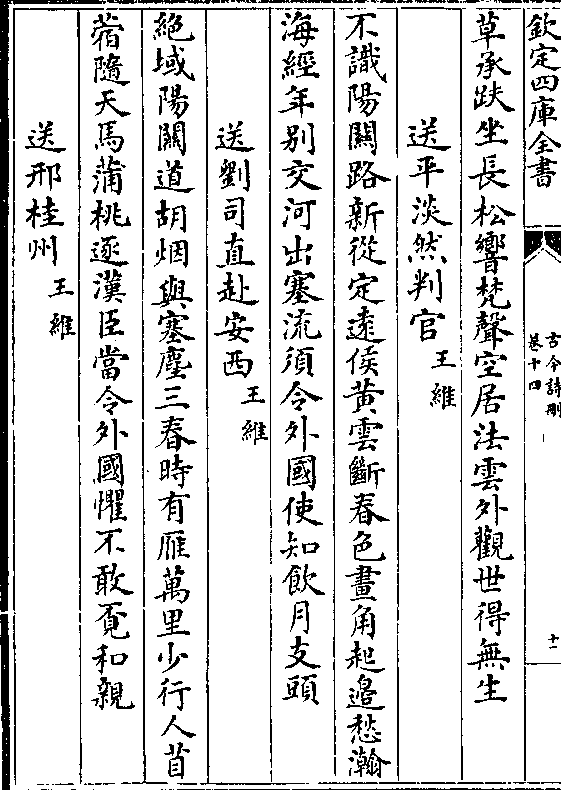 欽定四庫全書
古今詩刪
卷十四
十一
草承趺坐長松響梵聲空居法雲外觀世得無生
送平淡然判官 王維
不識陽關路新從定遠侯黃雲斷春色畫角起邉愁瀚
海經年别交河出塞流須令外國使知飲月支頭
送劉司直赴安西 王維
絶域陽關道胡烟與塞塵三春時有雁萬里少行人苜
蓿隨天馬蒲桃逐漢臣當令外國懼不敢覔和親
送邢桂州 王維